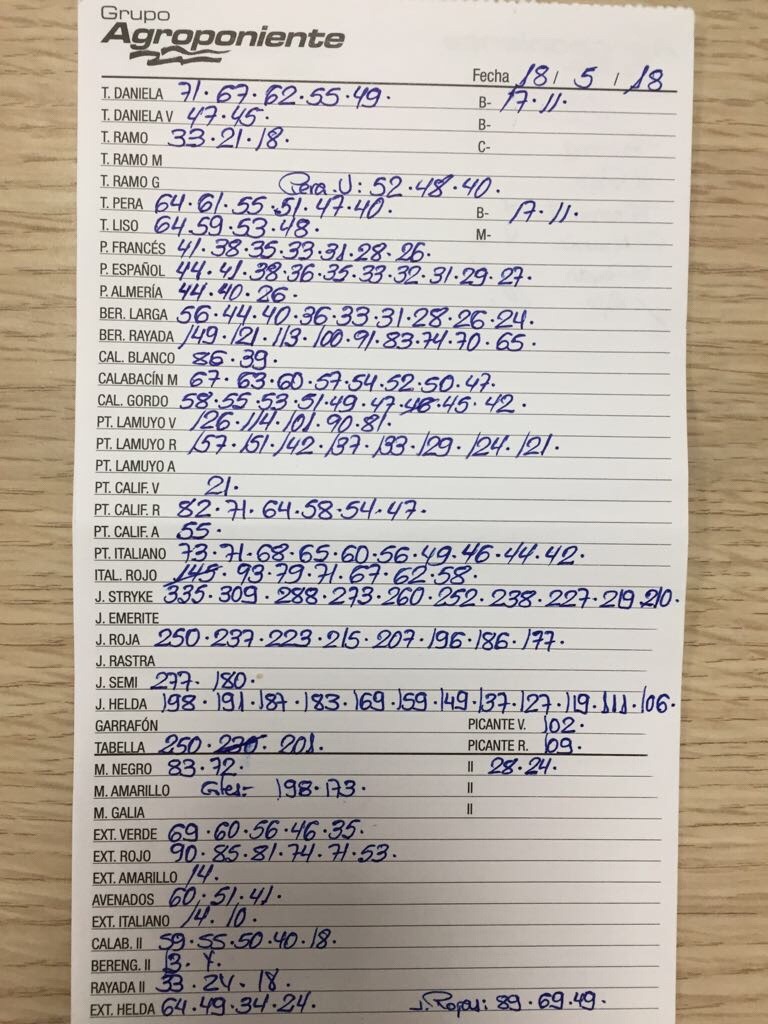 Grupo
Agroponiente
Fecha 18 / 5 / 18
T. DANIELA 71. 67. 62. 55. 49. B- 17. 11.
T. DANIELA V 47. 45. B-
T. RAMO 33. 21. 18. C-
T. RAMO M
T. RAMO G Pera V: 52. 48. 40.
T. PERA 64. 61. 55. 51. 47. 40. B- 17. 11.
T. LISO 64. 59. 53. 48. M-
P. FRANCÉS 41. 38. 35. 33. 31. 28. 26.
P. ESPAÑOL 44. 41. 38. 36. 35. 33. 32. 31. 29. 27.
P. ALMERÍA 44. 40. 26.
BER. LARGA 56. 44. 40. 36. 33. 31. 28. 26. 24.
BER. RAYADA 149. 121. 113. 100. 91. 83. 74. 70. 65.
CAL. BLANCO 86. 39.
CALABACÍN M 67. 63. 60. 57. 54. 52. 50. 47.
CAL. GORDO 58. 55. 53. 51. 49. 47. 46. 45. 42.
PT. LAMUYO V 126. 114. 101. 90. 81.
PT. LAMUYO R 157. 151. 142. 137. 133. 129. 124. 121.
PT. LAMUYO A
PT. CALIF. V 21.
PT. CALIF. R 82. 71. 64. 58. 54. 47.
PT. CALIF. A 55.
PT. ITALIANO 73. 71. 68. 65. 60. 56. 49. 46. 44. 42.
ITAL. ROJO 145. 93. 79. 71. 67. 62. 58.
J. STRYKE 335. 309. 288. 273. 260. 252. 238. 227. 219. 210.
J. EMERITE
J. ROJA 250. 237. 223. 215. 207. 196. 186. 177.
J. RASTRA
J. SEMI 277. 180.
J. HELDA 198. 191. 187. 183. 169. 159. 149. 137. 127. 119. 111. 106.
GARRAFÓN PICANTE V. 102.
TABELLA 250. 230. 201. PICANTE R. 109.
M. NEGRO 83. 72. II 28. 24.
M. AMARILLO 198. 173. II
M. GALIA II
EXT. VERDE 69. 60. 56. 46. 35.
EXT. ROJO 90. 85. 81. 74. 71. 53.
EXT. AMARILLO 14.
AVENADOS 60. 51. 41.
EXT. ITALIANO 14. 10.
CALAB. II 59. 55. 50. 40. 18.
BERENG. II 13.
RAYADA II 33. 24. 18.
EXT. HELDA 64. 49. 34. 24. J. Rojas: 89. 69. 49.